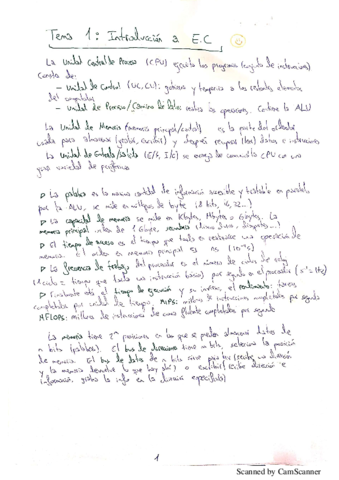 Tema 1: Introducción a E.C
La Unidad Central de Proceso (CPU) ejecuta los programas (conjunto de instrucciones)
Consta de:
- Unidad de Control (UC, CU): gobierna y temporiza a los restantes elementos
del computador
- Unidad de Proceso/Camino de Datos: realiza las operaciones. Contiene la ALU
La Unidad de Memoria (memoria principal/central) es la parte del
usada para almacenar y después (leer) datos e instrucciones
La Unidad de Entrada/Salida (E/S, I/O) se encarga de comunicar la CPU con una
gran variedad de periféricos
▷ La palabra es la máxima cantidad de información accesible y tratable en paralelo
por la ALU, se mide en múltiplos de byte (8 bits, 16, 32...)
▷ La capacidad de memoria se mide en Kbytes, Mbytes o Gbytes. La
memoria principal
▷ El tiempo de acceso es el tiempo que tarda en realizarse una operación de
memoria. El orden en memoria principal es ns (10⁻⁹s)
▷ La frecuencia de trabajo del procesador es el número de ciclos de reloj
▷ Finalmente está el tiempo de ejecución y su inverso, el rendimiento: tareas
completadas por unidad de tiempo. MIPS: millones de instrucciones completadas por segundo
MFLOPS: millones de instrucciones de coma flotante completadas por segundo
La memoria tiene 2ⁿ posiciones en las que se pueden almacenar datos de
n bits (palabra). El bus de direcciones tiene bits, selecciona la posición
de memoria. El bus de datos de n bits sirve para leer (recibe una dirección
y la memoria devuelve lo que hay ahí) o escribir (recibe dirección e
información, graba la info en la dirección especificada)
1
Scanned by CamScanner